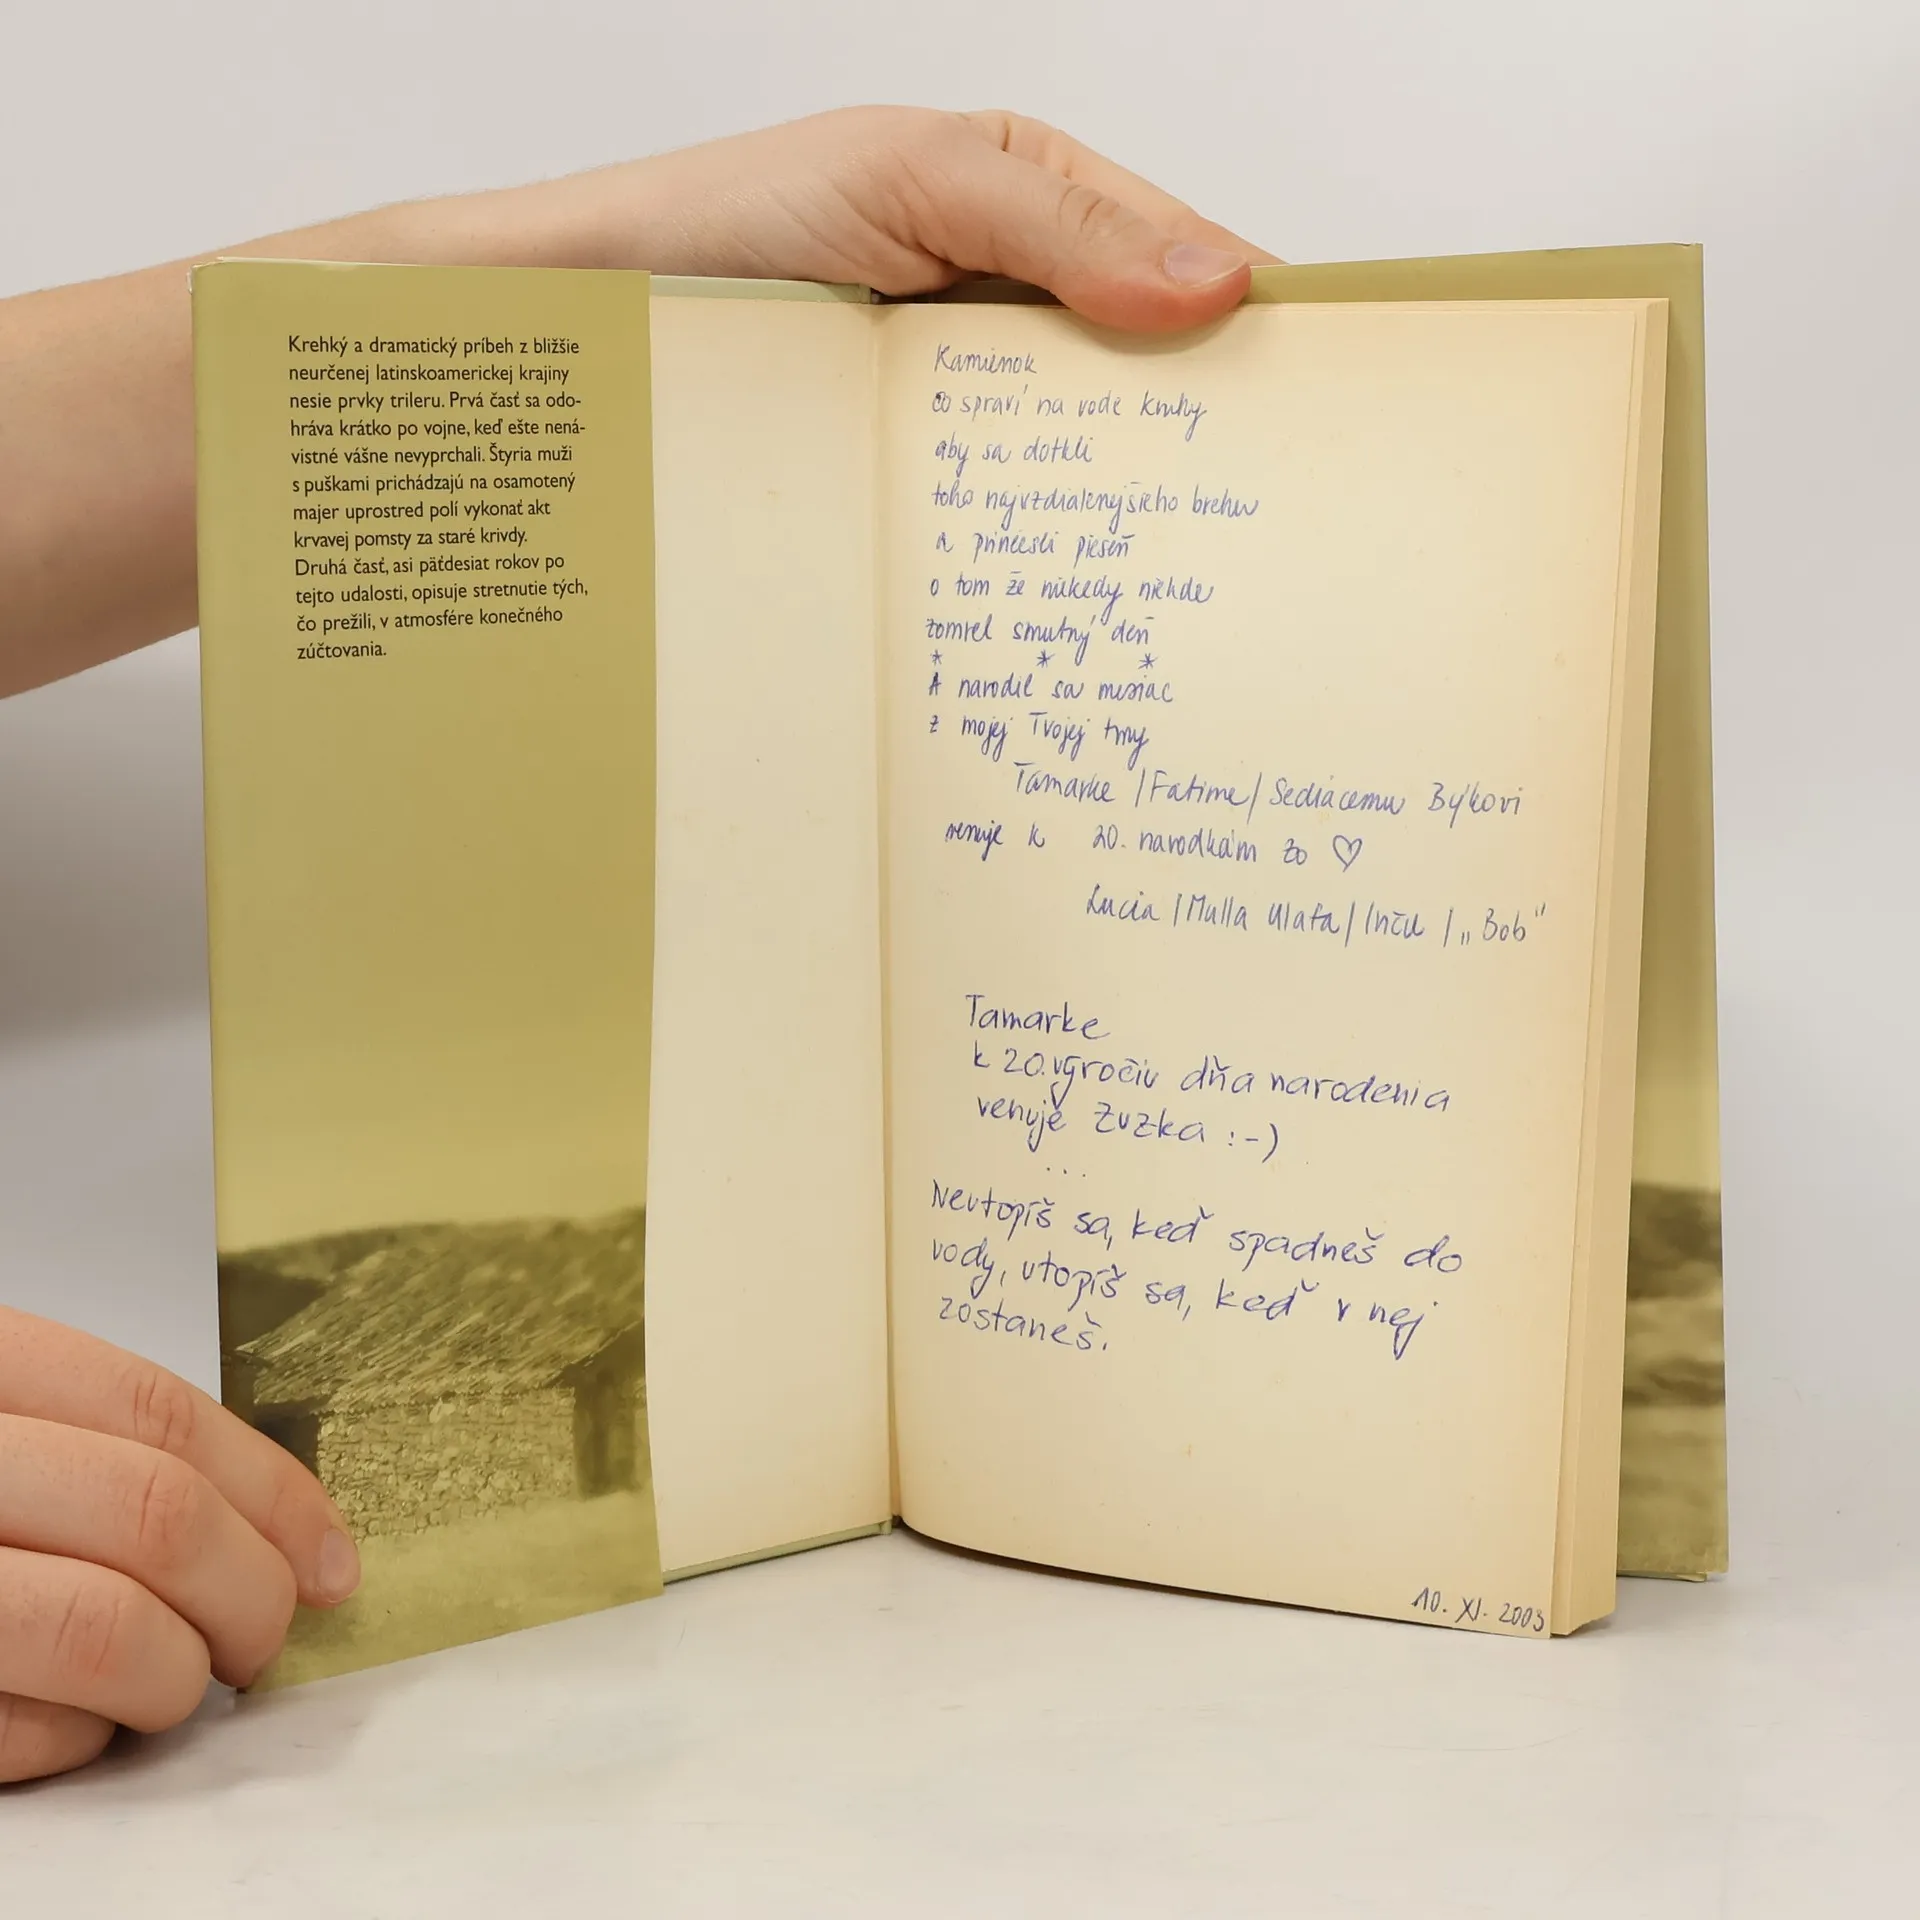 Krehký a dramatický príbeh z bližšie
neurčenej latinskoamerickej krajiny
nesie prvky trileru. Prvá časť sa odo-
hráva krátko po vojne, keď ešte nená-
vistné vášne nevyprchali. Štyria muži
s puškami prichádzajú na osamotený
majer uprostred polí vykonať akt
krvavej pomsty za staré krivdy.
Druhá časť, asi päťdesiat rokov po
tejto udalosti, opisuje stretnutie tých,
čo prežili, v atmosfére konečného
zúčtovania.
Kamienok
čo spraví na vode kruhy
aby sa dotkli
toho najvzdialenejšieho brehu
a priniesli pieseň
o tom že niekedy niekde
zomrel smutný deň
* * *
A narodil sa mesiac
z mojej Tvojej tmy
Tamarke /Fatime/ Sediacemu Býkovi
venuje k 20. narodkám zo ♡
Lucia / Mulla Ulafa / Inču / „Bob"
Tamarke
k 20. výročiu dňa narodenia
venuje Zuzka :-)
...
Neutopíš sa, keď spadneš do
vody, utopíš sa, keď v nej
zostaneš.
10. XI. 2003